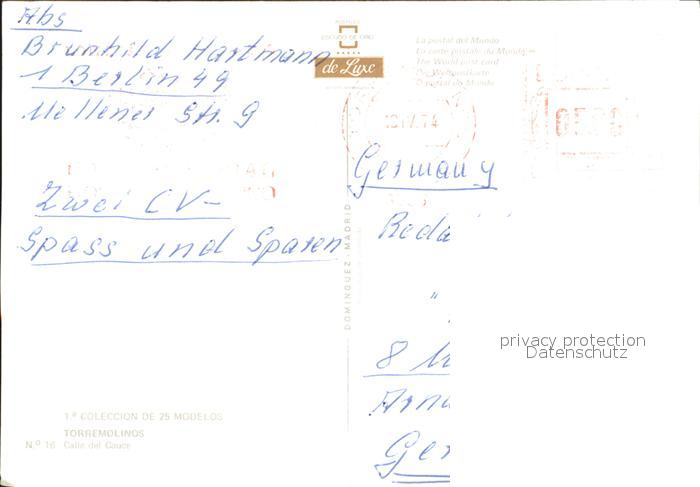 Abs
Brunhild Hartmann
1 Berlin 49
Mellener Str. 9
Zwei CV-
Spass und Sparen
ESCUDO DE ORO
de Luxe
La postal del Mundo
La carte postale du Monde
The World post card
Die Weltpostkarte
O postal do Mundo
74
Germany
Reda
"
8
Arnu
Ger
DOMINGUEZ - MADRID
privacy protection
Datenschutz
1.ª COLECCION DE 25 MODELOS
TORREMOLINOS
N.º 16 Calle del Cauce